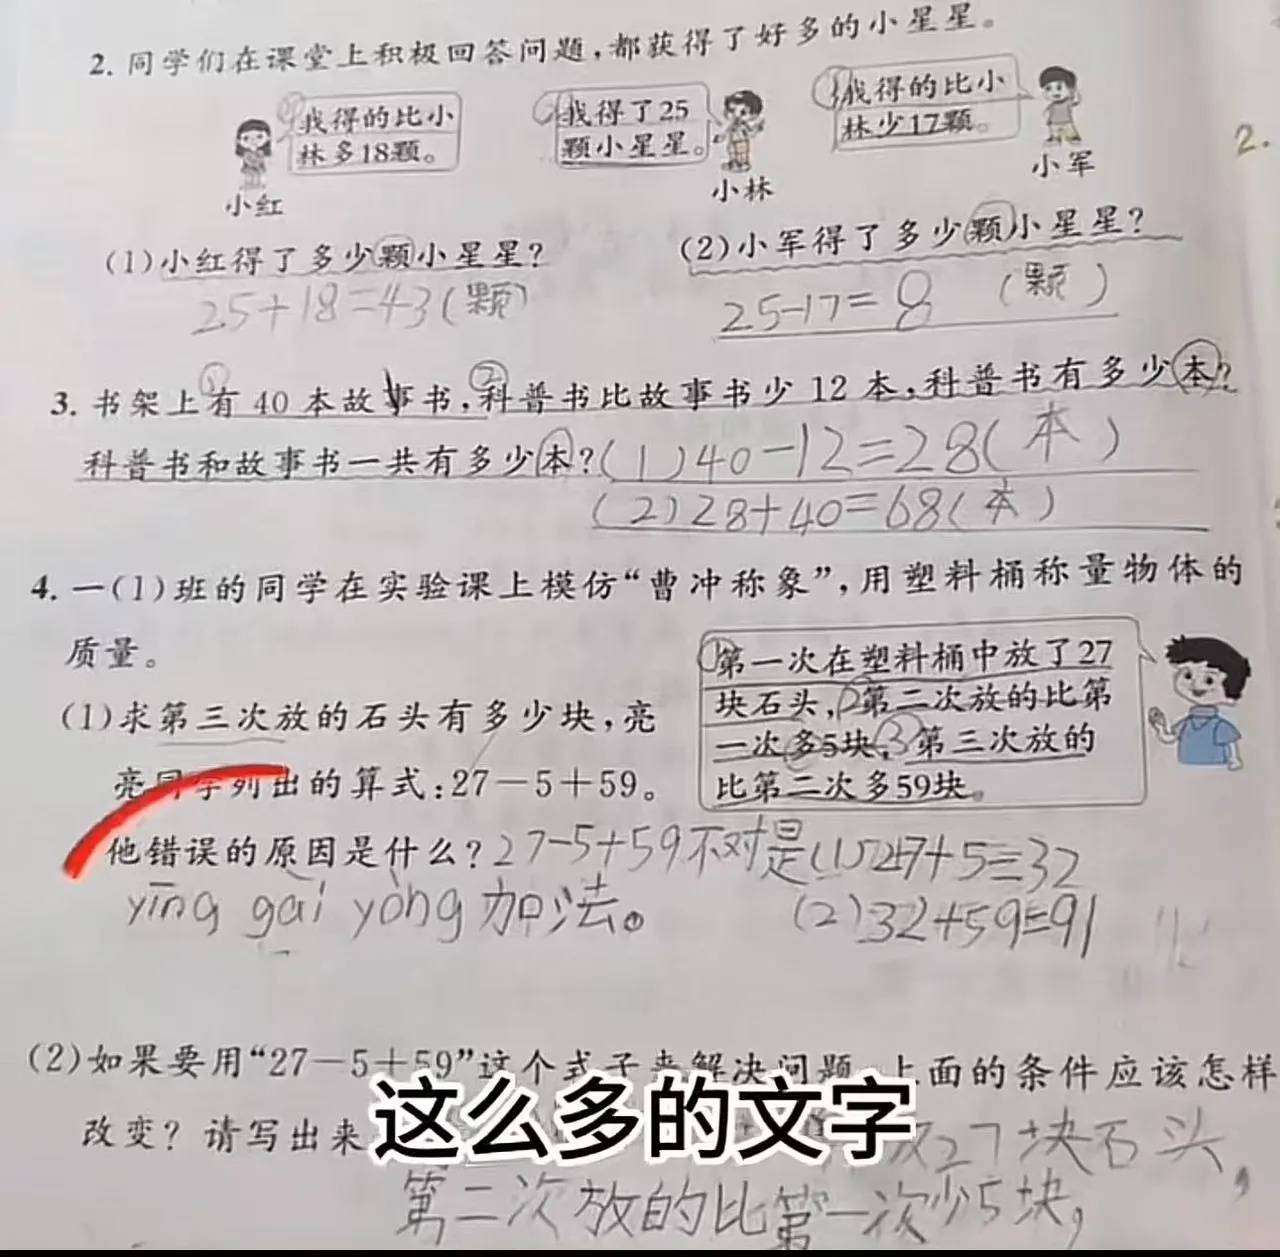 2. 同学们在课堂上积极回答问题,都获得了好多的小星星。
我得的比小
林多18颗。
小红
我得了25
颗小星星。
小林
我得的比小
林少17颗。
小军
2.
(1)小红得了多少颗小星星?
25+18=43(颗)
(2)小军得了多少颗小星星?
25-17=8 (颗)
3. 书架上有40本故事书,科普书比故事书少12本,科普书有多少本?
科普书和故事书一共有多少本?(1)40-12=28(本)
(2)28+40=68(本)
4. 一(1)班的同学在实验课上模仿“曹冲称象”,用塑料桶称量物体的
质量。
①第一次在塑料桶中放了27
块石头,②第二次放的比第
一次多5块,③第三次放的
比第二次多59块。
(1)求第三次放的石头有多少块,亮
亮同学列出的算式:27-5+59。
他错误的原因是什么?27-5+59不对是(1)27+5=32
yīng gāi yòng 加法。
(2)32+59=91
(2)如果要用“27-5+59”这个式子来解决问题,上面的条件应该怎样
改变?请写出来
27块石头,
第二次放的比第一次少5块,
这么多的文字